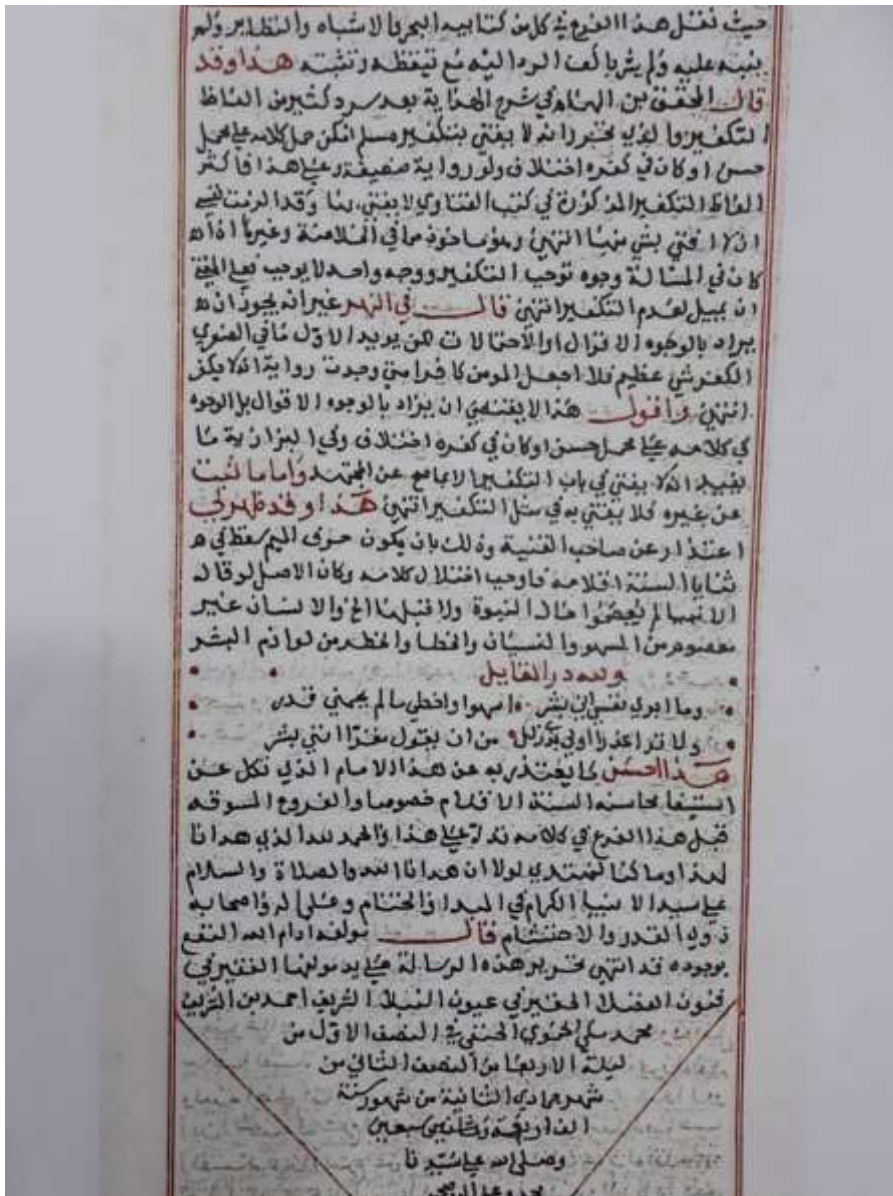 حيث نقل هذا الفرع في كل من كتابيه البحر والاشباه والنظاير ولم
ينبه عليه ولم يشر بالف الره اليه مع تيقظه وتثبته هذا وقد
قال المحقق بن الهمام في شرح الهداية بعد سرد كثير من الفاظ
التكفير والذي تحرر انه لا يفتي بتكفير مسلم امكن حمل كلامه علي محمل
حسن او كان في كفره اختلاف ولو رواية ضعيفة وعلي هذا فاكثر
الفاظ التكفير المذكورة في كتب الفتاوي لا يفتي بها وقد الزمت نفسي
ان لا افتي بشي منها انتهي وهو ماخوذ مما في الخلاصة وغيرها اذا
كان في المسالة وجوه توجب التكفير ووجه واحد لا يوجب فعلي المفتي
ان يميل لعدم التكفير انتهي قال في النهر غير انه يجوز ان
يراد بالوجوه الاقوال او الاحتمالات لكن يويد الاول ما في الصغري
الكفر شي عظيم فلا اجعل المومن كافرا متي وجدت رواية انه لا يكفر
انتهي واقول هذا لا يقتضي ان يراد بالوجوه الاقوال بل الوجوه
في كلامه علي محمل حسن او كان في كفره اختلاف وفي البزازية ما
يفيد انه لا يفتي في باب التكفير الا بما صح عن المجتهد واما ما ثبت
عن غيره فلا يفتي به في مثل التكفير انتهي هذا وقد ظهر لي
اعتذار عن صاحب القنية وذلك بان يكون حرف الميم سقط في
ثنايا السنة اقلامه فاوجب اختلال كلامه وكان الاصل لو قال
الانبيا لم يعصموا حال النبوة ولا قبلها الخ والانسان غير
معصوم من السهو والنسيان والخطا والخطر من لوازم البشر
ولله در القايل
وما ابري نفسي اني بشر اسهو واخطي ما لم يحمني قدر
ولا تر اعذرا اولي بذي زلل من ان يقول مقرا انني بشر
هذا احسن ما يعتذر به عن هذا الامام الذي تكل عن
استيفا محاسنه السنة الاقلام خصوصا والفروع المسوقه
قبل هذا الفرع في كلامه تدل علي هذا والحمد لله الذي هدانا
لهذا وما كنا لنهتدي لولا ان هدانا الله والصلاة والسلام
علي سيد الانبيا الكرام في المبدا والختام وعلي اله واصحابه
ذوي القدر والاحتشام قال مولفه ادام الله النفع
بوجوده قد انتهي تحرير هذه الرسالة علي يد مولفها الفقير في
فنون الفضلا الحقير في عيون النبلا الشريف احمد بن الشريف
محمد مكي الحموي الحنفي في النصف الاول من
ليلة الاربعا من النصف الثاني من
شهر جمادي الثانية من شهور سنة
الف
وصلي الله علي سيدنا
محمد وعلي